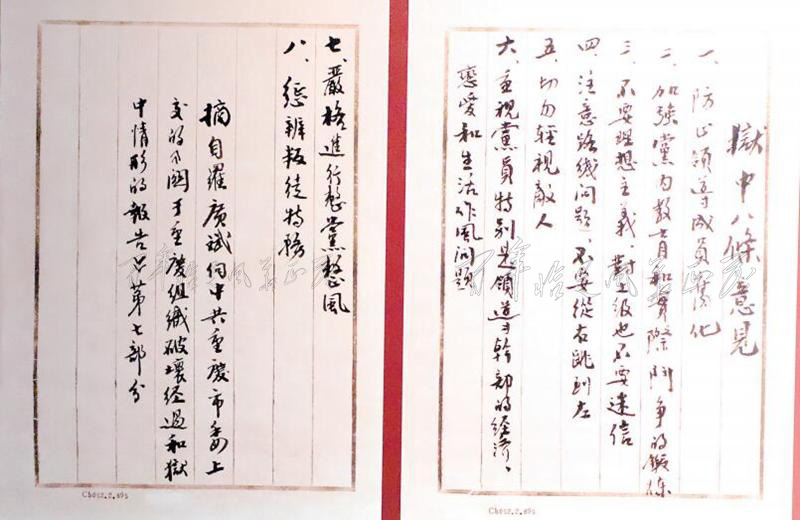 獄中八條意見
一、防止領導成員腐化
二、加強黨內教育和實際鬥爭的鍛煉
三、不要理想主義、對上級也不要迷信
四、注意路线问题、不要從右跳到左
五、切勿輕視敵人
六、重視黨員特别是領導幹部的经济、
戀愛和生活作風问題
七、嚴格進行整黨整風
八、懲辦叛徒特務
摘自羅廣斌向中共重慶市委上
交的《関于重慶組織破壞经過和獄
中情形的報告》第七部分